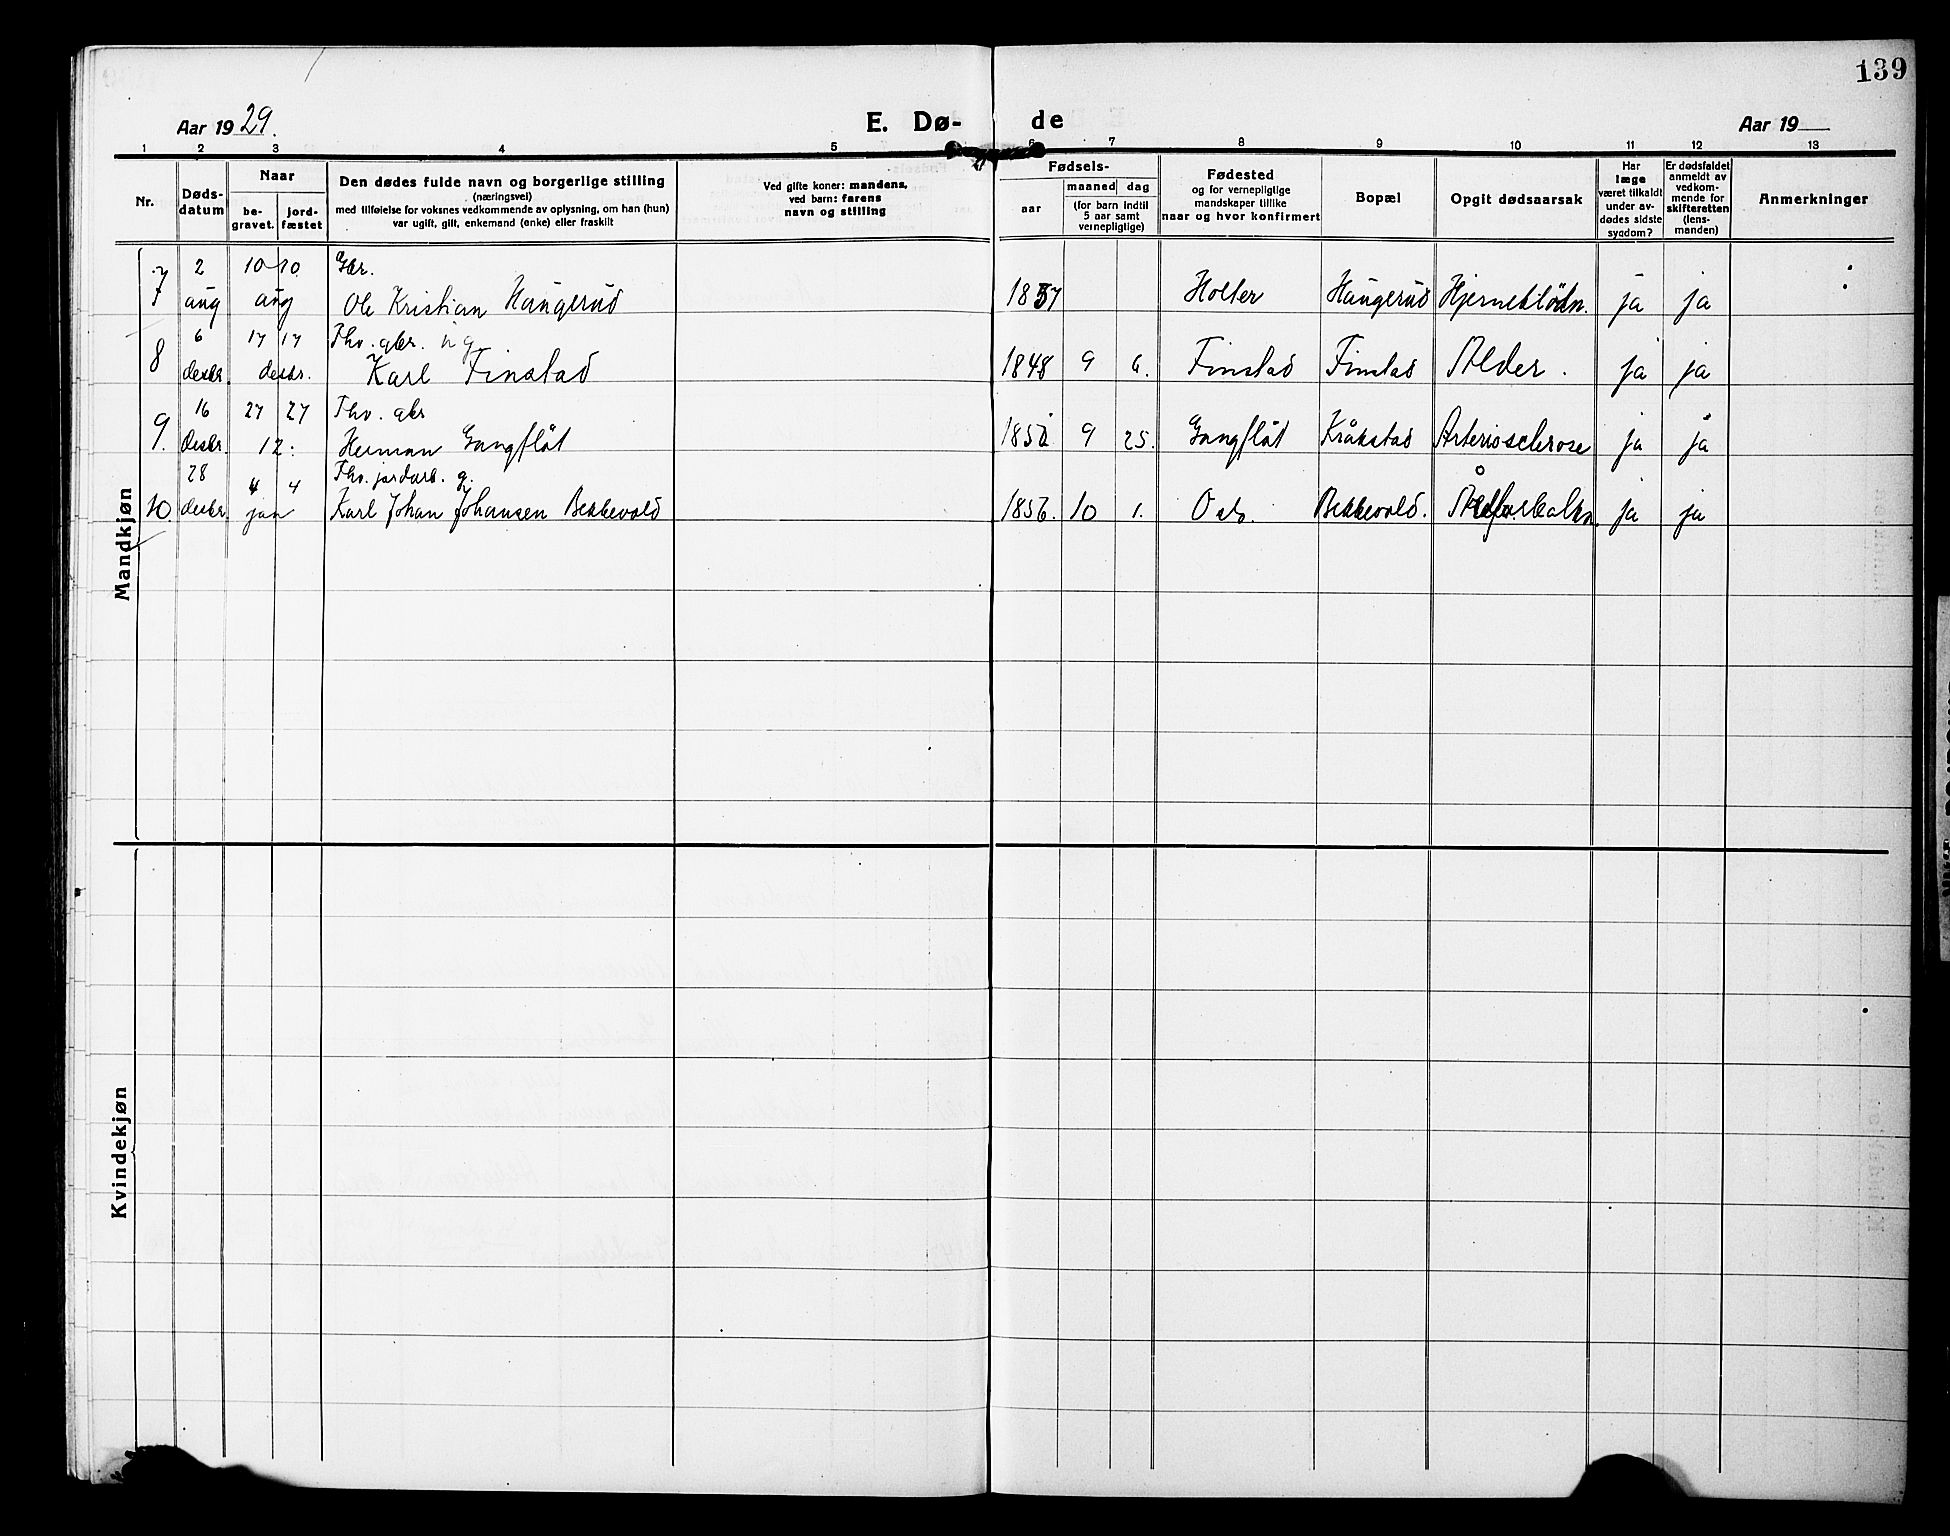 139
Aar 1929.
E. Dø-
de
Aar 19
1 2 3 4 5 6 7 8 9 10 11 12 13
Nr.
Døds-
datum
Naar
be-
gravet.
jord-
fæstet
Den dødes fulde navn og borgerlige stilling
(næringsvei)
med tilføielse for voksnes vedkommende av oplysning, om han (hun)
var ugift, gift, enkemand (enke) eller fraskilt
Ved gifte koner: mandens,
ved barn: farens
navn og stilling
Fødsels-
aar
maaned
dag
(for barn indtil
5 aar samt
vernepligtige)
Fødested
og for vernepligtige
mandskaper tillike
naar og hvor konfirmert
Bopæl
Opgit dødsaarsak
Har
læge
været tilkaldt
under av-
dødes sidste
sygdom?
Er dødsfaldet
anmeldt av
vedkom-
mende for
skifteretten
(lens-
manden)
Anmerkninger
Mandkjøn
2 10 10 Gbr.
7 aug aug Ole Kristian Haugerud 1857 Holter Haugerud Hjerneblødn. ja ja
6 17 17 Fhv. gbr. ug
8 desbr. desbr. Karl Finstad 1848 9 6. Finstad Finstad Alder. ja ja
16 27 27 Fhv. gbr
9. desbr. 12. Herman Gangfløt 9 25. Gangfløt Kråkstad Arteriosclerose ja ja
28 4 4 Fhv. jordarb. g.
10. desbr. jan Karl Johan Johansen Bekkevold 1856. 10 1. Oslo. Bekkevold. ja ja
Kvindekjøn